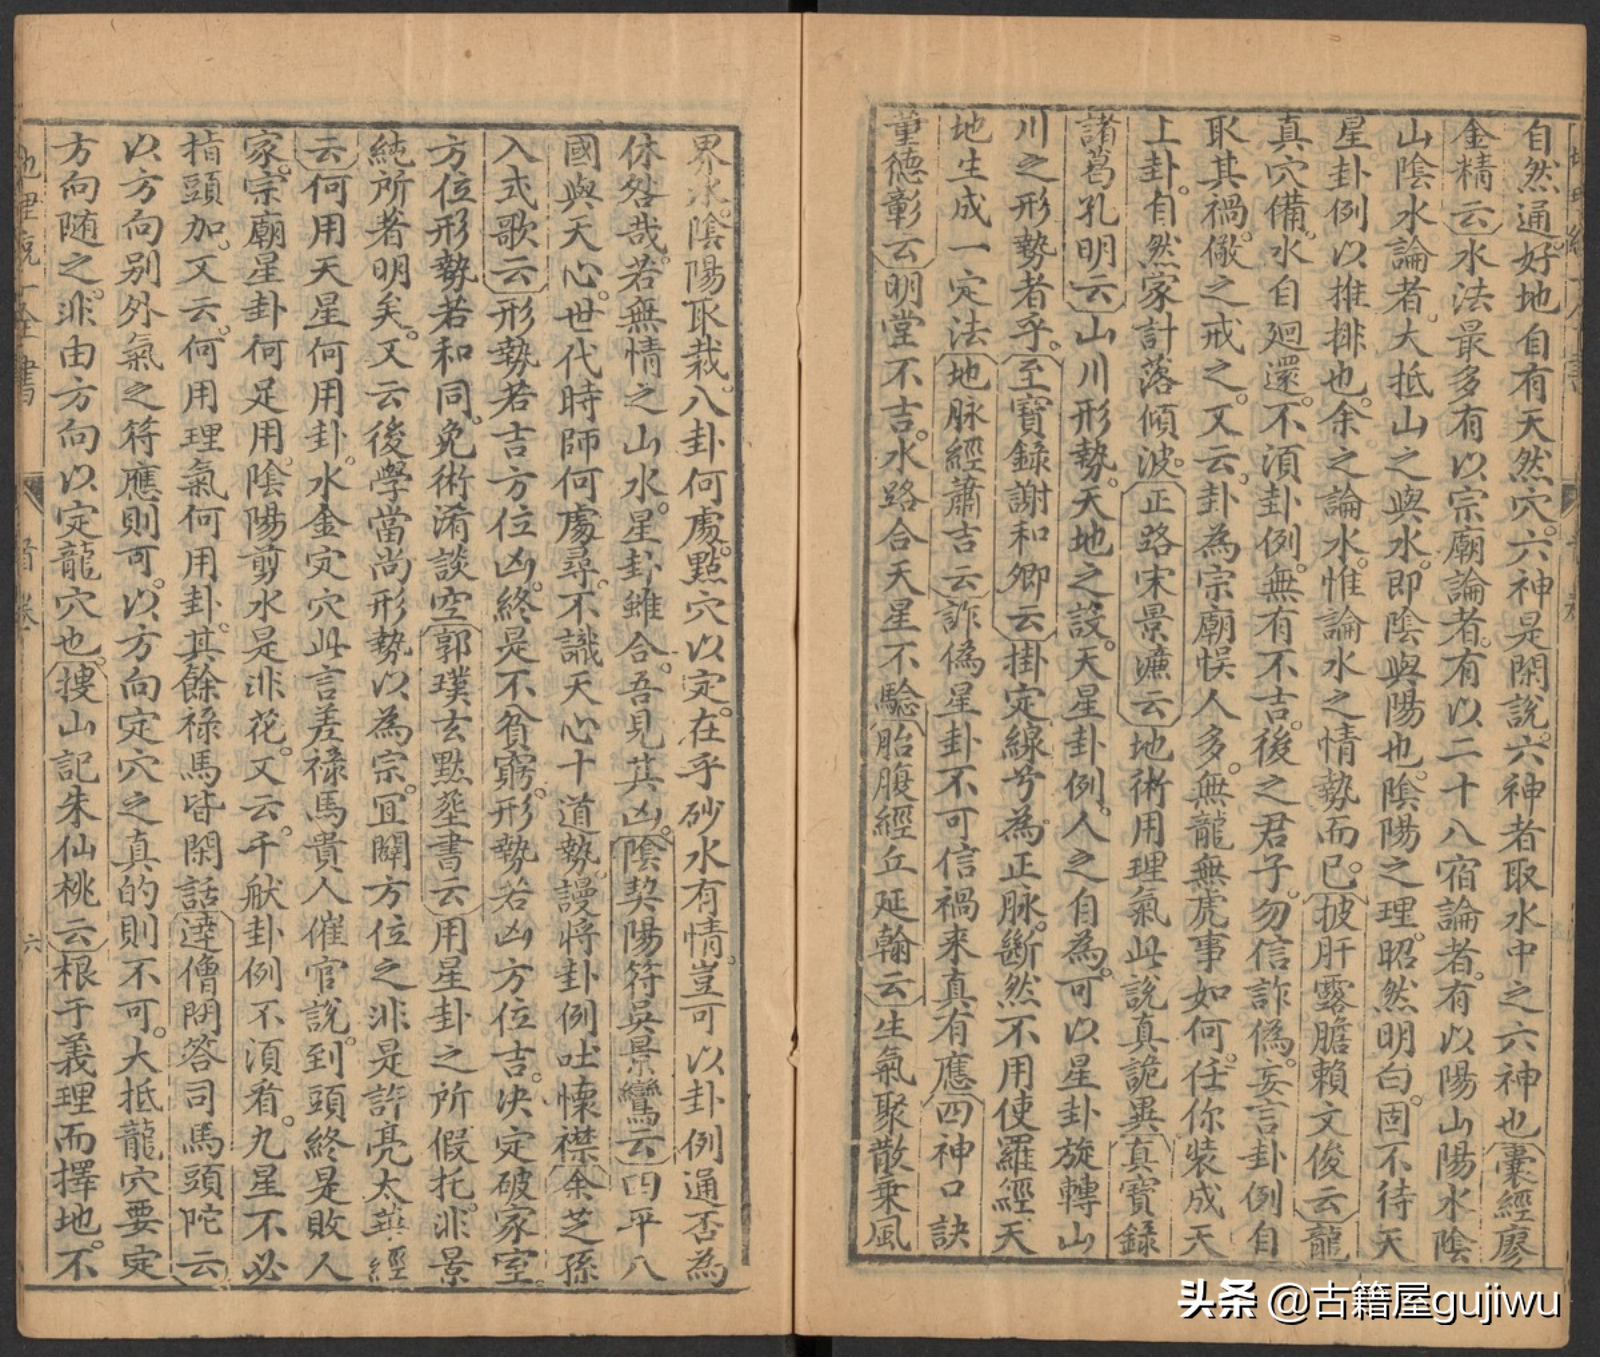 自然通好地自有天然穴六神是閑說六神者取水中之六神也囊經廖
金精云水法最多有以宗廟論者有以二十八宿論者有以陽山陽水陰
山陰水論者大抵山之與水即陰與陽也陰陽之理昭然明白固不待天
星卦例以推排也余之論水惟論水之情勢而已披肝露膽賴文俊云龍
真穴備水自廻還不湏卦例無有不吉後之君子勿信詐偽妄言卦例自
取其禍儆之戒之又云卦為宗廟悞人多無龍無虎事如何任你裝成天
上卦自然家計落傾波正路宋景濂云地術用理氣此說真詭異真寶錄
諸葛孔明云山川形勢天地之設天星卦例人之自為可以星卦旋轉山
川之形勢者乎至寶錄謝和卿云掛定線兮為正脉斷然不用使羅經天
地生成一定法地脉經蕭吉云詐偽星卦不可信禍来真有應四神口訣
董德彰云明堂不吉水路合天星不驗胎腹經丘延翰云生氣聚散乗風
界水陰陽取裁八卦何處點穴以定在乎砂水有情豈可以卦例通否為
休咎哉若無情之山水星卦雖合吾見其凶陰契陽符吳景鸞云四平八
國與天心世代時師何處尋不識天心十道勢謾將卦例吐懷襟余芝孫
入式歌云形勢若吉方位凶終是不貧窮形勢若凶方位吉决定破家室
方位形勢若和同免術淆談空郭璞玄黙塟書云用星卦之所假托非景
純所著明矣又云後學當尚形勢以為宗宜闢方位之非是許亮太華經
云何用天星何用卦水金定穴此言差祿馬貴人催官說到頭終是敗人
家宗廟星卦何足用陰陽剪水是非花又云千猷卦例不湏看九星不必
指頭加又云何用理氣何用卦其餘祿馬皆閑話達僧問答司馬頭陀云
以方向别外氣之符應則可以方向定穴之真的則不可大抵龍穴要定
方向随之非由方向以定龍穴也摟山記朱仙桃云根于義理而擇地不
首卷
六
头条 @古籍屋gujiwu